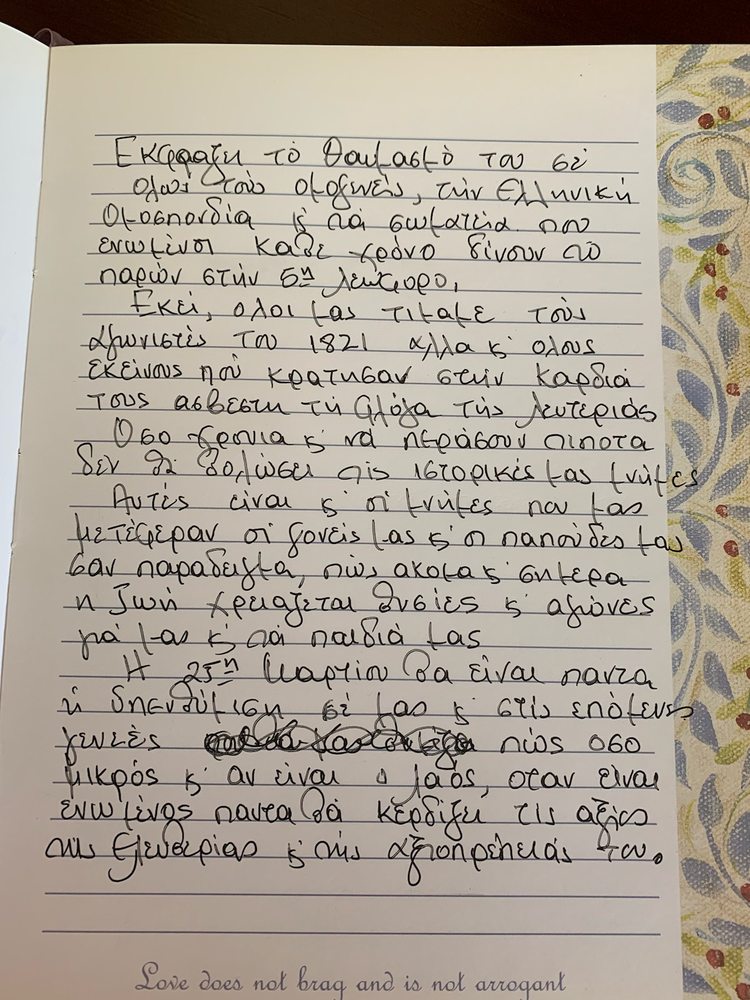 Εκφραζη τὸ θαυμασμὸ του σὲ
ολους τοὺς ομογενεῖς, τὴν Ελληνική
Ομοσπονδία κ' τὰ σωματεία που
ενωμένοι καθε χρόνο δίνουν τὸ
παρὼν στὴν 5η λεύφορο,
Εκεί, ολοι μας τιμαμε τοὺς
αγωνιστὲς του 1821 αλλα κ' ολους
εκείνους ποὺ κρατησαν στὴν καρδιά
τους ασβεστη τὴ φλόγα τῆς λευτεριάς
Οσο χρονια κ' νὰ περάσουν τιποτα
δὲν θὰ θολώσει τὶς ιστορικές μας μνήμες
Αυτές είναι κ' οἱ μνήμες που μας
μετέφεραν οἱ γονείς μας κ' οι παπούδες μας
σαν παραδειγμα, πὼς ακομα κ' σημερα
η ζωή χρειαζεται θυσίες κ' αγώνες
γιά μας κ' τὰ παιδιά μας
Η 25η Μαρτίου θα είναι παντα
ἡ ὑπενθύμιση σὲ μας κ' στὶς επόμενες
γενεὲς πὼς οσο
μικρός κ' αν είναι ο λαός, οταν είναι
ενωμένος παντα θὰ κερδίζει τις αξίες
της Ελευθερίας κ' τῆς αξιοπρέπειάς του.
Love does not brag and is not arrogant